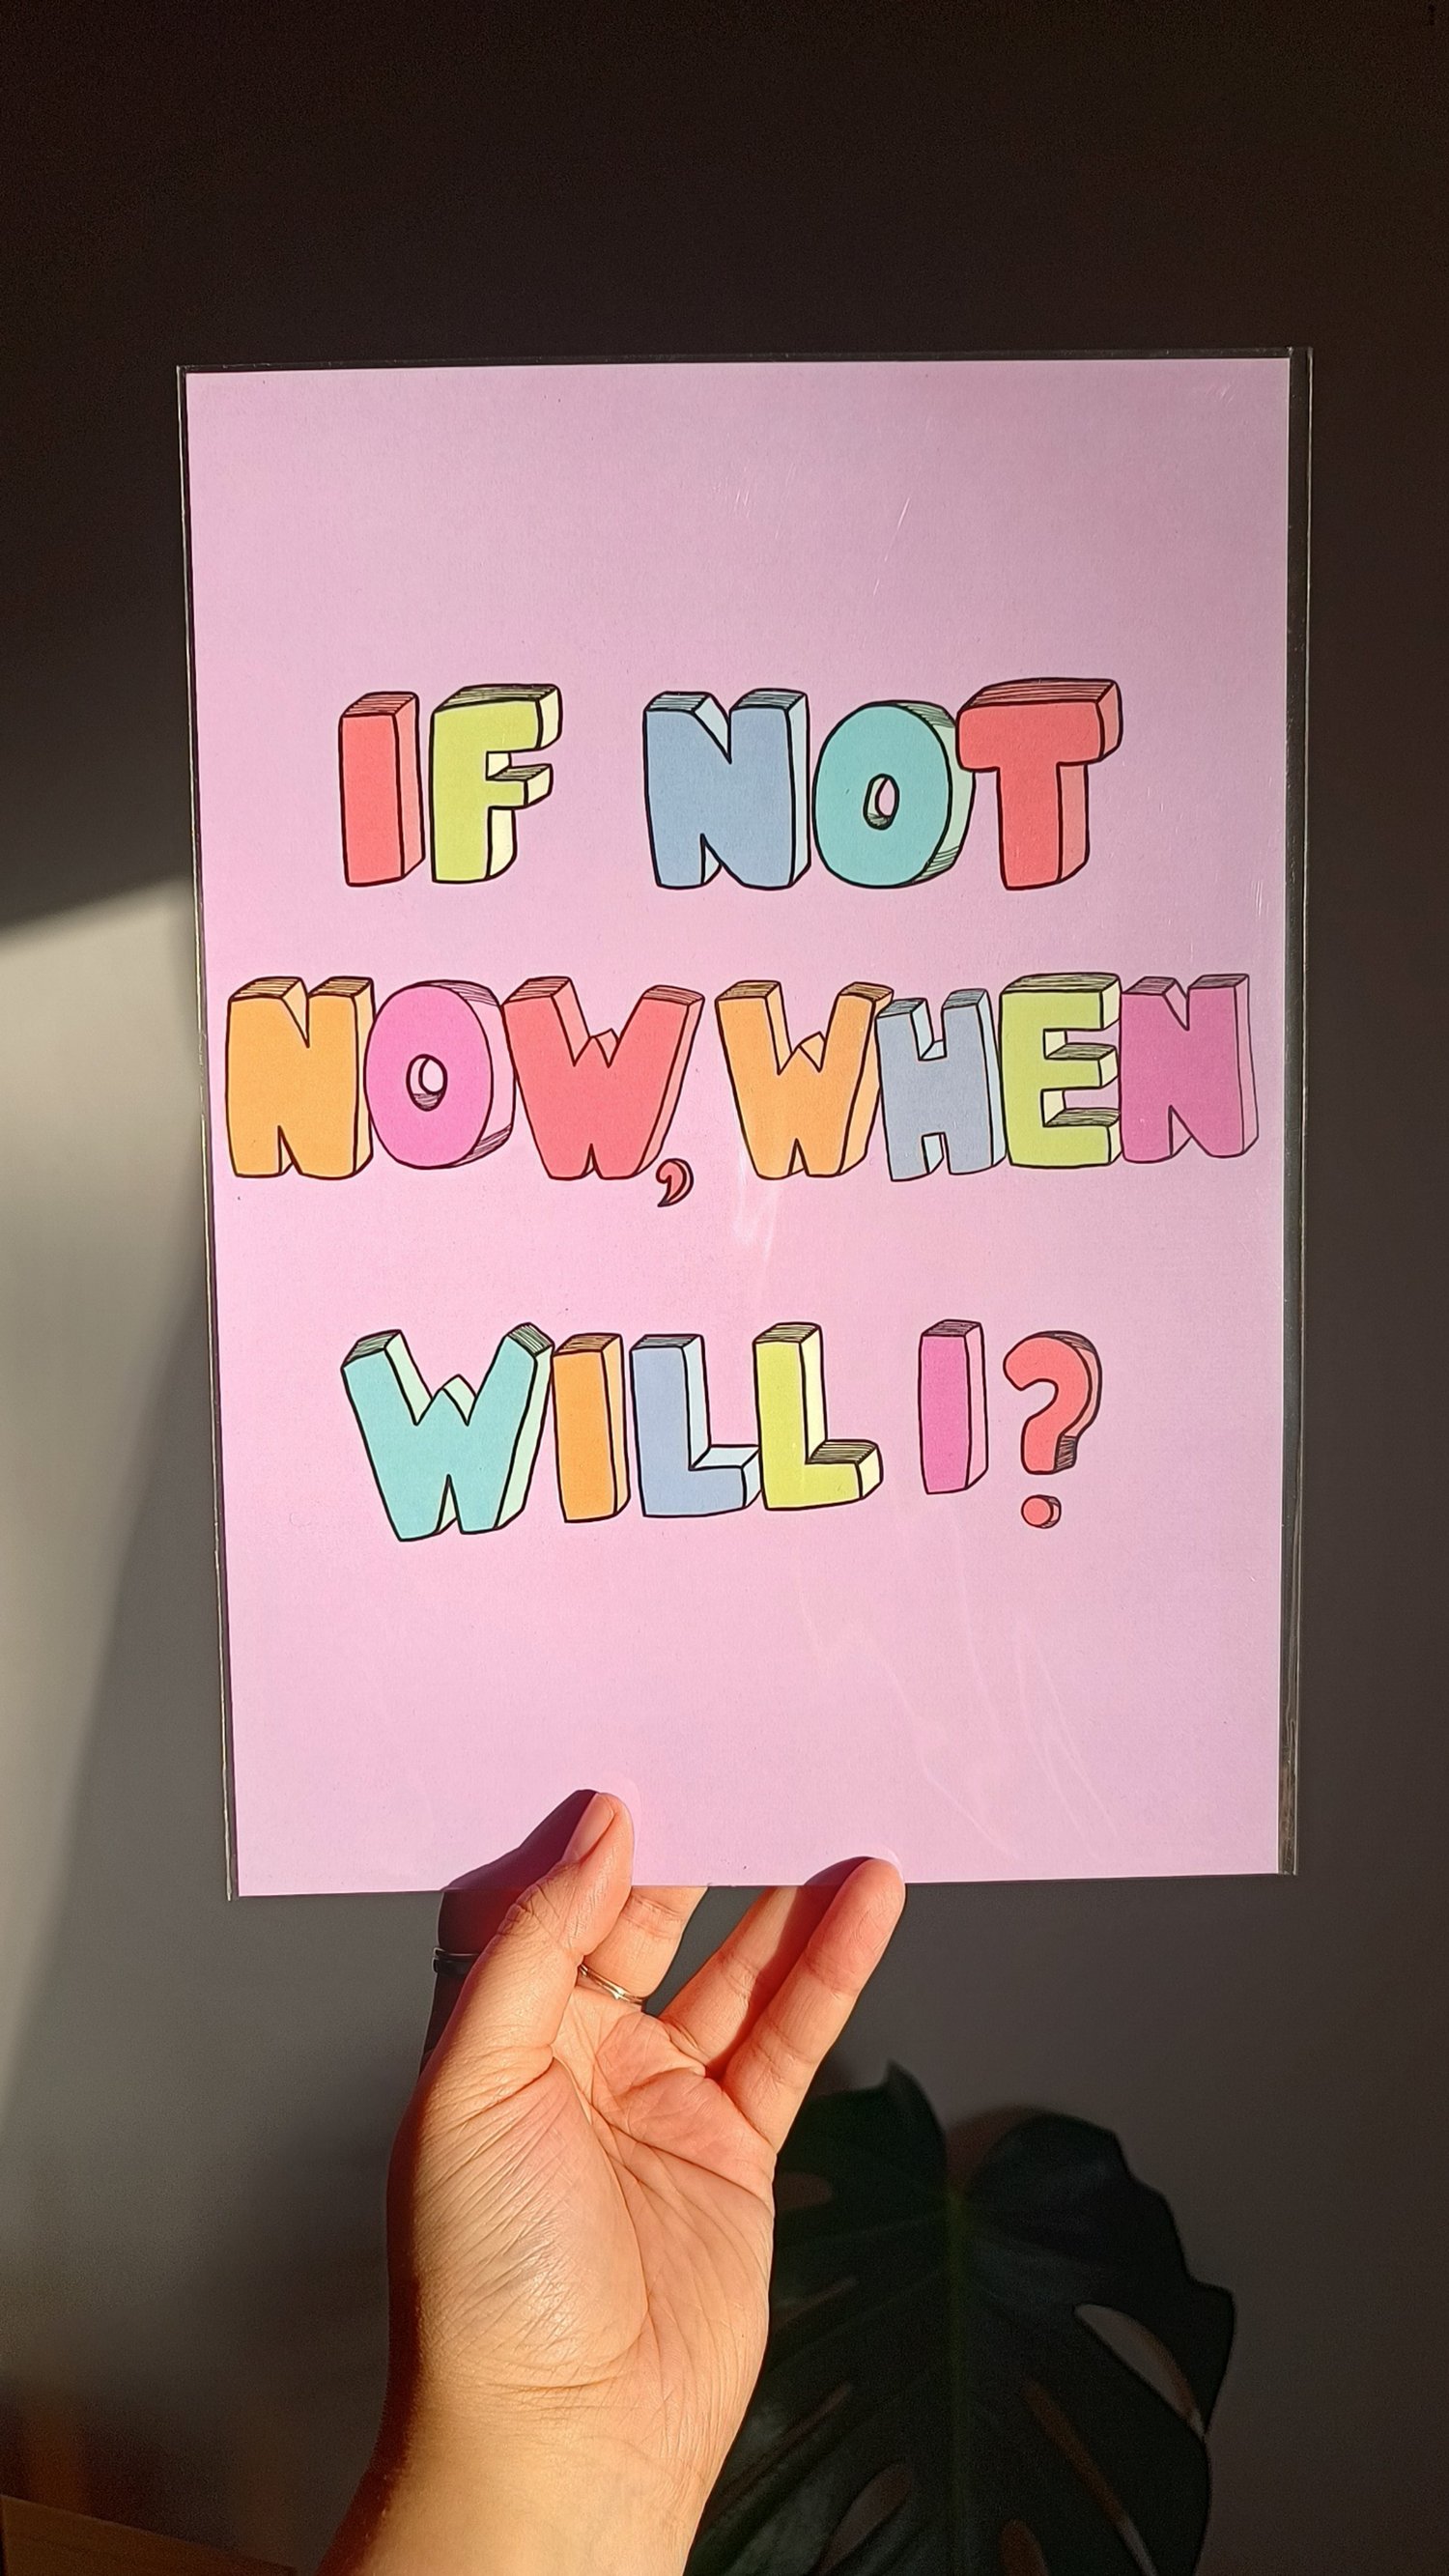 IF NOT
NOW, WHEN
WILL I?